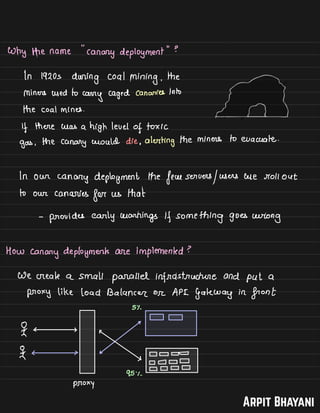 Why the name "canary deployment"?
In 1920s during coal mining, the
miners used to carry caged canaries into
the coal mines.
If there was a high level of toxic
gas, the canary would die, alerting the miners to evacuate.
In our canary deployment the few servers/users we roll out
to our canaries for us that
- provides early warnings if something goes wrong
How canary deployments are implemented?
We create a small parallel infrastructure and put a
proxy like Load Balancer or API Gateway in front
5%
95%
proxy
ARPIT BHAYANI